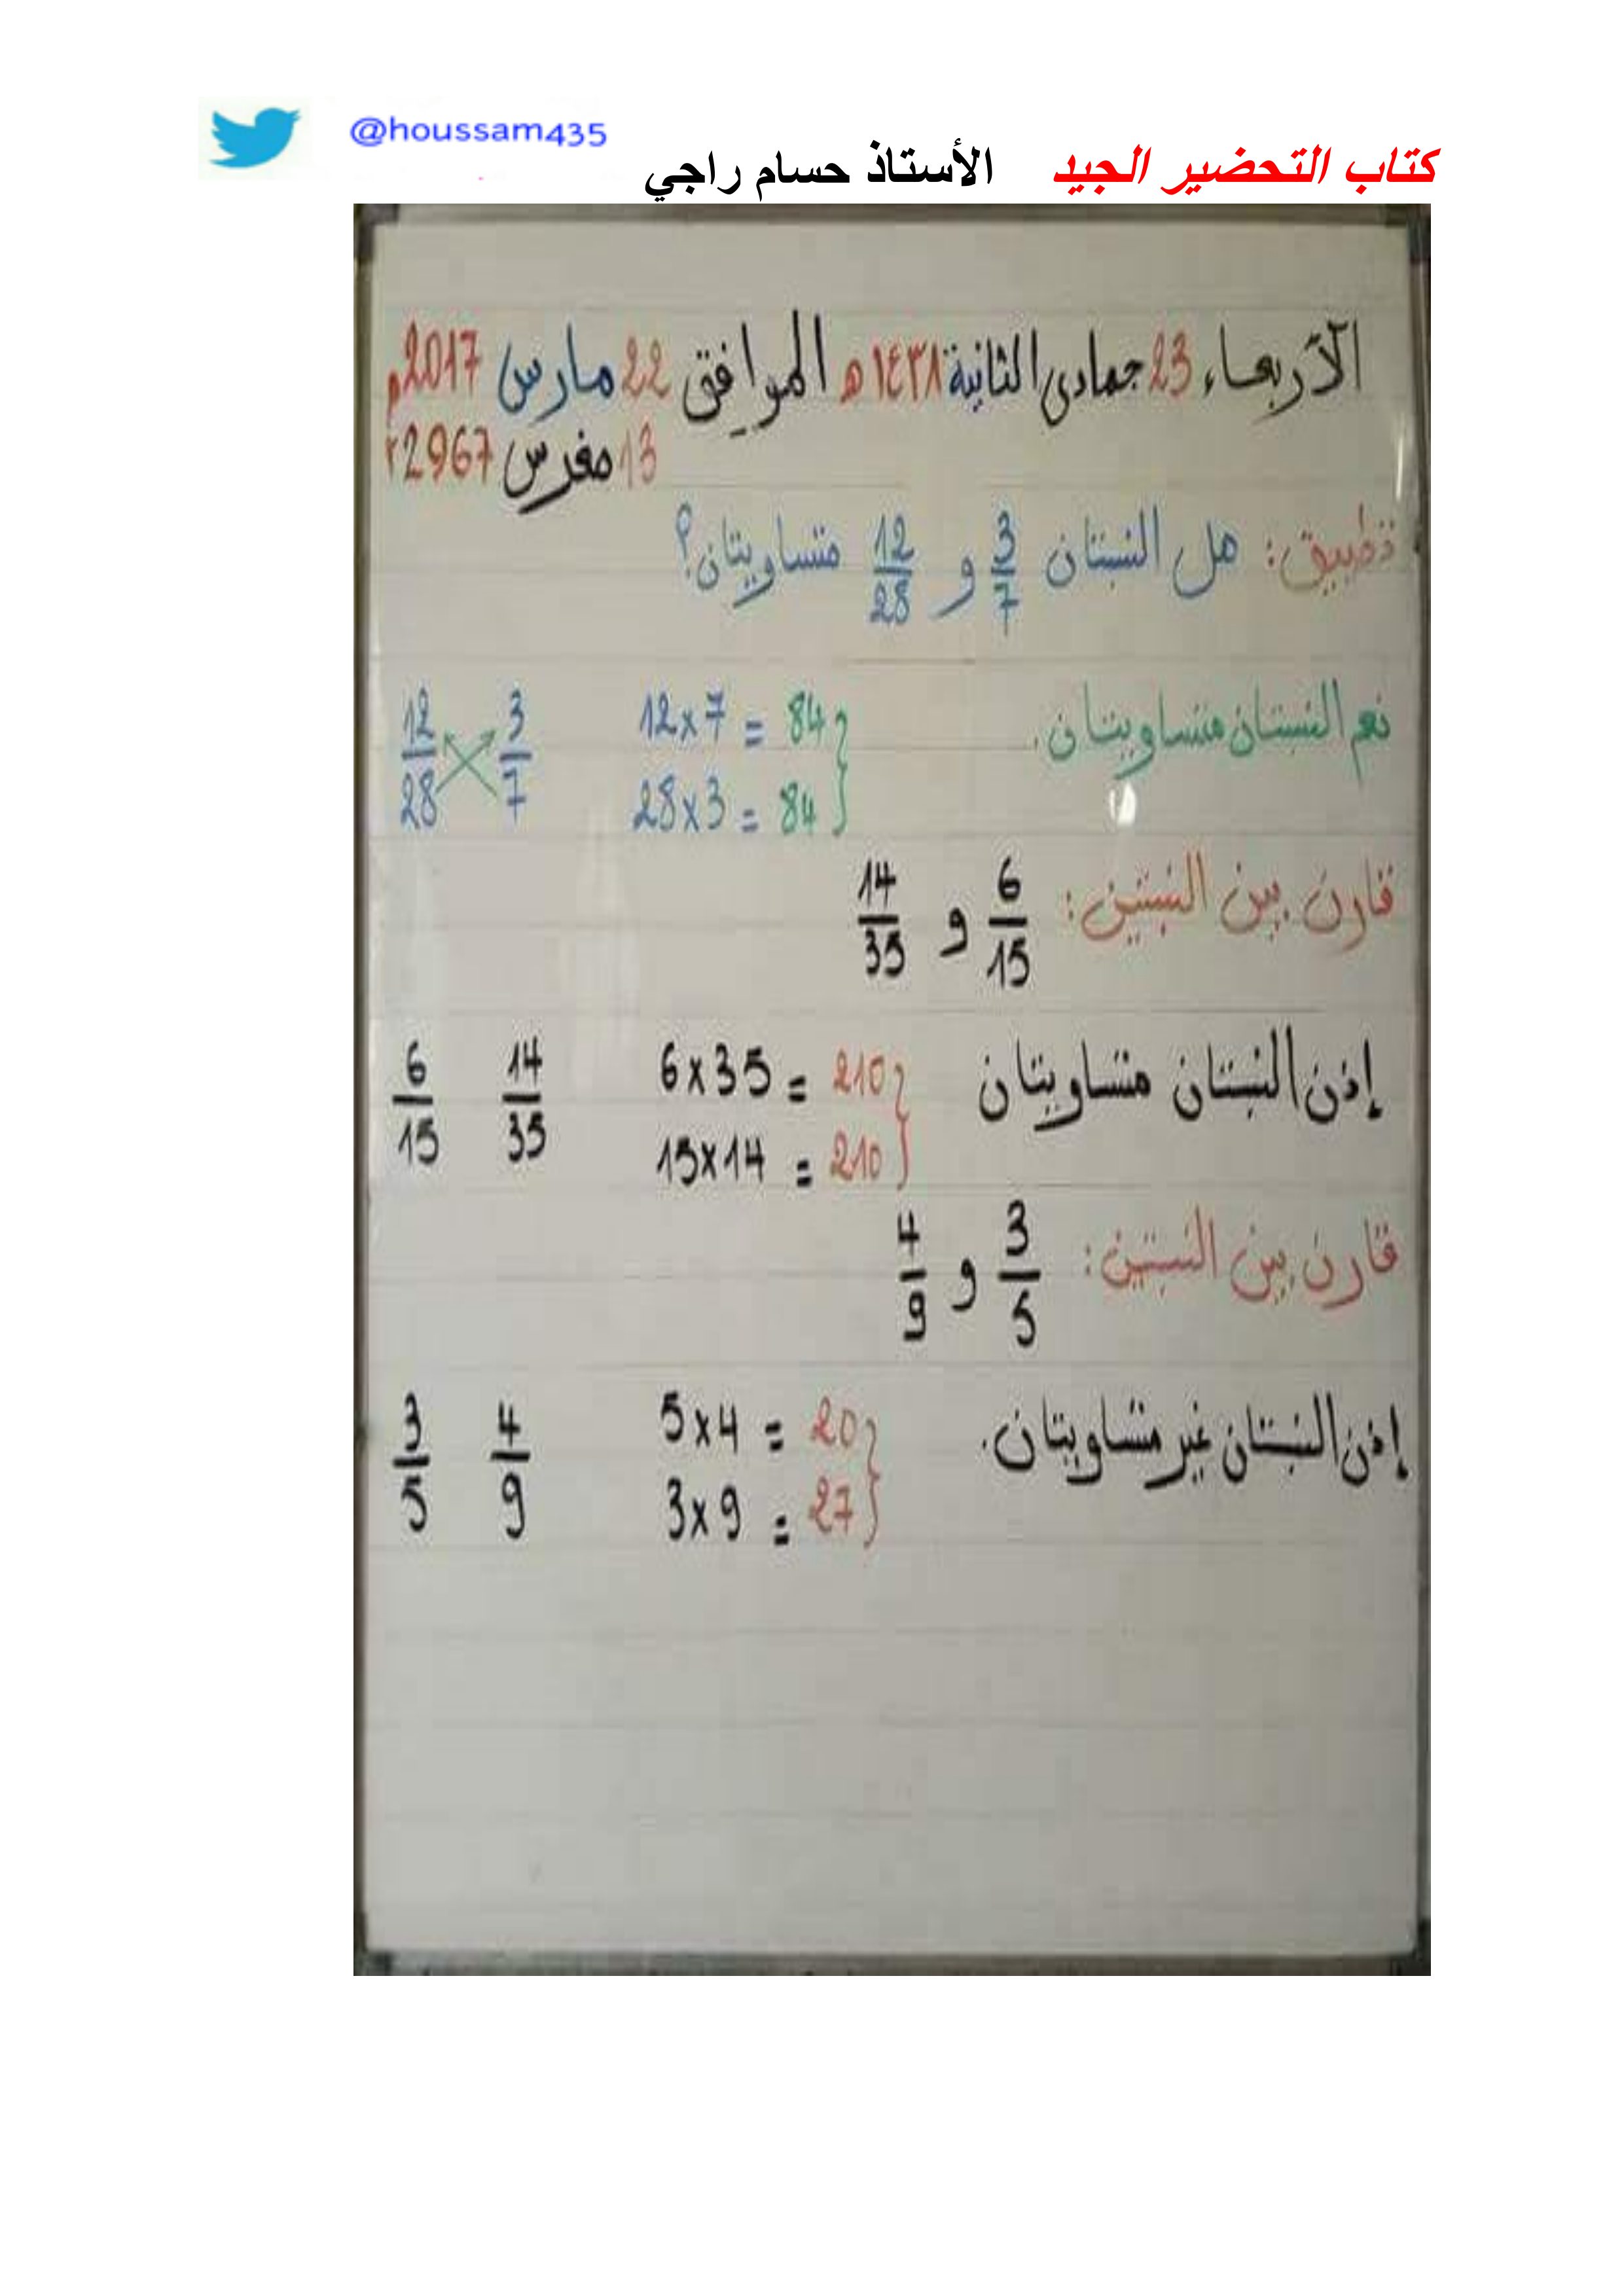 @houssam435
كتاب التحضير الجيد الأستاذ حسام راجي
الأربعاء 23 جمادى الثانية ١٤٣٨ه الموافق 22 مارس 2017م
13 مغرس 2967م
تطبيق: هل النسبتان 3/7 و 12/28 متساويتان؟
نعم النسبتان متساويتان. 12x7 = 84 12/28 3/7
28x3 = 84
قارن بين النسبتين: 6/15 و 14/35
إذن النسبتان متساويتان 6x35 = 210 6/15 14/35
15x14 = 210
قارن بين النسبتين: 3/5 و 4/9
إذن النسبتان غير متساويتان. 5x4 = 20 3/5 4/9
3x9 = 27